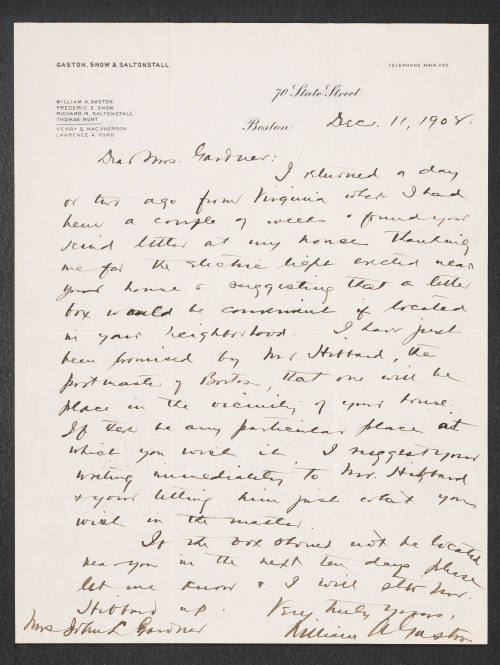 GASTON, SNOW & SALTONSTALL
TELEPHONE MAIN 200
WILLIAM A. GASTON
FREDERIC E. SNOW
RICHARD M. SALTONSTALL
THOMAS HUNT
HENRY S. MACPHERSON
LAWRENCE A. FORD
70 State Street
Boston
Dec. 11, 1908.
Dear Mrs. Gardner:
I returned a day
or two ago from Virginia where I had
been a couple of weeks & found your
kind letter at my house thanking
me for the electric light erected near
your house & suggesting that a letter
box would be convenient if located
in your neighborhood. I have just
been promised by Mr. Hibbard, the
postmaster of Boston, that one will be
place in the vicinity of your house.
If there be any particular place at
which you wish it, I suggest your
writing immediately to Mr. Hibbard
& your telling him just what you
wish in the matter
If the box should not be located
near you in the next ten days please
let me know & I will stir Mr.
Hibbard up. Very truly yours,
Mrs John L Gardner William A Gaston